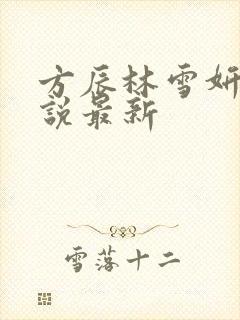 方辰林雪妍
說最新
雪落十二